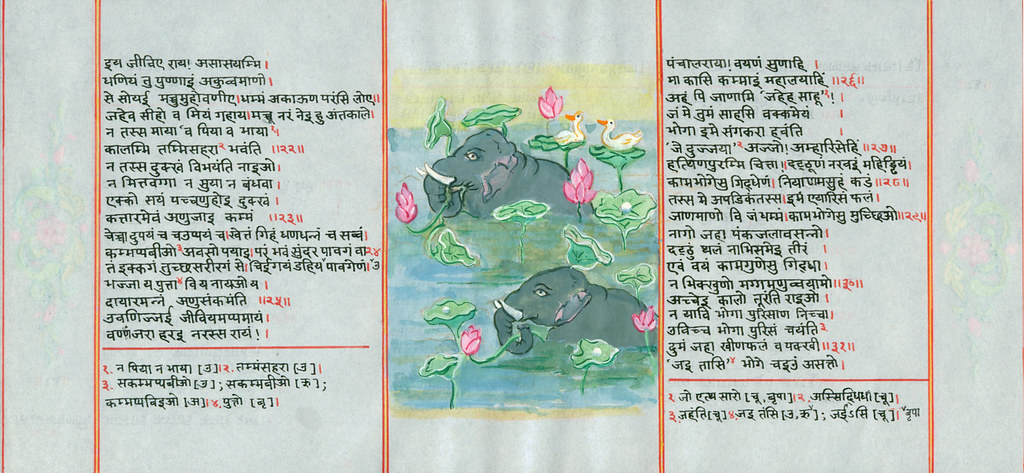 इय जीविए राय! असासयम्मि ।
धणियं तु पुण्णाइं अकुव्वमाणो ।
से सोयई मच्चुमुहोवणीए । धम्मं अकाऊण परंसि लोए ॥
जहेव सीहो व मियं गहाय । मच्चू नरं नेइ हु अंतकाले ।
न तस्स माया 'व पिया व भाया'१ ।
कालम्मि तम्मिंसहरा२ भवंति ॥२२॥
न तस्स दुक्खं विभयंति नाइओ ।
न मित्तवग्गा न सुया न बंधवा ।
एक्को सयं पच्चणुहोइ दुक्खं ।
कत्तारमेवं अणुजाइ कम्मं ॥२३॥
चेच्चा दुपयं च चउप्पयं च । खेत्तं गिहं धणधन्नं च सव्वं ।
कम्मप्पबीओ३ अवसो पयाइ । परं भवं सुंदर पावगं वा २४
तं इक्कगं तुच्छसरीरगं से । चिईगयं डहिय पावगेणं ।
भज्जा य पुत्ता४ वि य नायओ य ।
दायारमन्नं अणुसंकमंति ॥२५॥
उवणिज्जई जीवियमप्पमायं ।
वण्णं जरा हरइ नरस्स रायं! ।
१. न पिया न भाया [उ] । २. तम्मंसहरा [उ] ।
३. सकम्मप्पबीओ [उ] ; सकम्मबीओ [ऋ] ;
कम्मप्पबिइओ [अ] । ४. पुत्तो [बृ] ।
पंचालराया! वयणं सुणाहि ।
मा कासि कम्माइं महालयाहिं ॥२६॥
अहं पि जाणामि 'जहेह साहू'१! ।
जं मे तुमं साहसि वक्कमेयं ।
भोगा इमे संगकरा हवंति ।
'जे दुज्जया'२ अज्जो! अम्हारिसेहिं ॥२७॥
हत्थिणपुरम्मि चित्ता! । दट्ठूणं नरवइं महिड्ढियं ।
कामभोगेसु गिद्धेणं । नियाणमसुहं कडं ॥२८॥
तस्स मे अपडिकंतस्स । इमं एयारिसं फलं ।
जाणमाणो वि जं धम्मं । कामभोगेसु मुच्छिओ ॥२९॥
नागो जहा पंकजलावसन्नो ।
दट्ठुं थलं नाभिसमेइ तीरं ।
एवं वयं कामगुणेसु गिद्धा ।
न भिक्खुणो मग्गमणुव्वयामो ॥३०॥
अच्चेइ कालो तूरंति राइओ ।
न यावि भोगा पुरिसाण निच्चा ।
उविच्च भोगा पुरिसं चयंति३
दुमं जहा खीणफलं व पक्खी ॥३१॥
'जइ तासि'४ भोगे चइउं असत्तो ।
१ जो एत्थ सारो [चू, बृपा] । २.
३. जहंति [चू] ४. जइ तंसि [उ, ऋ] ; जईऽसि [चू] । बृपा